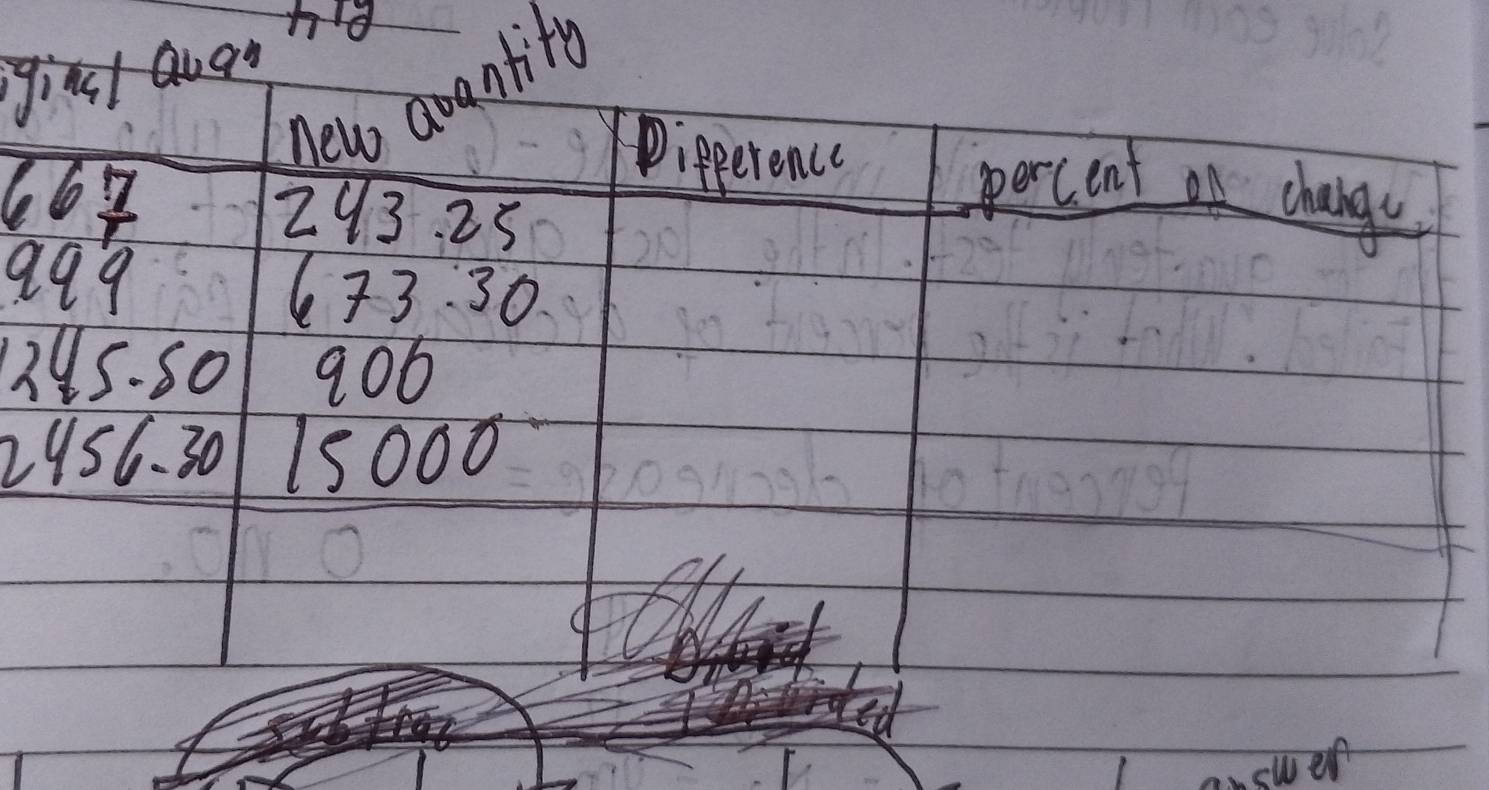 iginal Quan tity
New Quantity Difference percent of change
667 243.25
999 673.30
1245.50 900
2456.30 15000
subtrac
Divided
answer